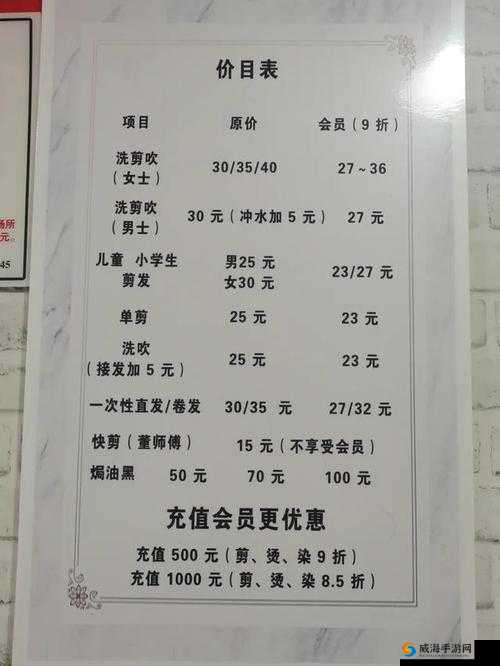 价目表
项目 原价 会员（9 折）
洗剪吹
（女士） 30/35/40 27~36
洗剪吹
（男士） 30 元（冲水加 5 元） 27 元
儿童 小学生 男25 元
剪发 女30 元 23/27 元
单剪 25 元 23 元
洗吹
（接发加 5 元） 25 元 23 元
一次性直发/卷发 30/35 元 27/32 元
快剪（董师傅） 15 元（不享受会员）
焗油黑 50 元 70 元 100 元
充值会员更优惠
充值 500 元（剪、烫、染 9 折）
充值 1000 元（剪、烫、染 8.5 折）
场所
元。
45
威海手游网